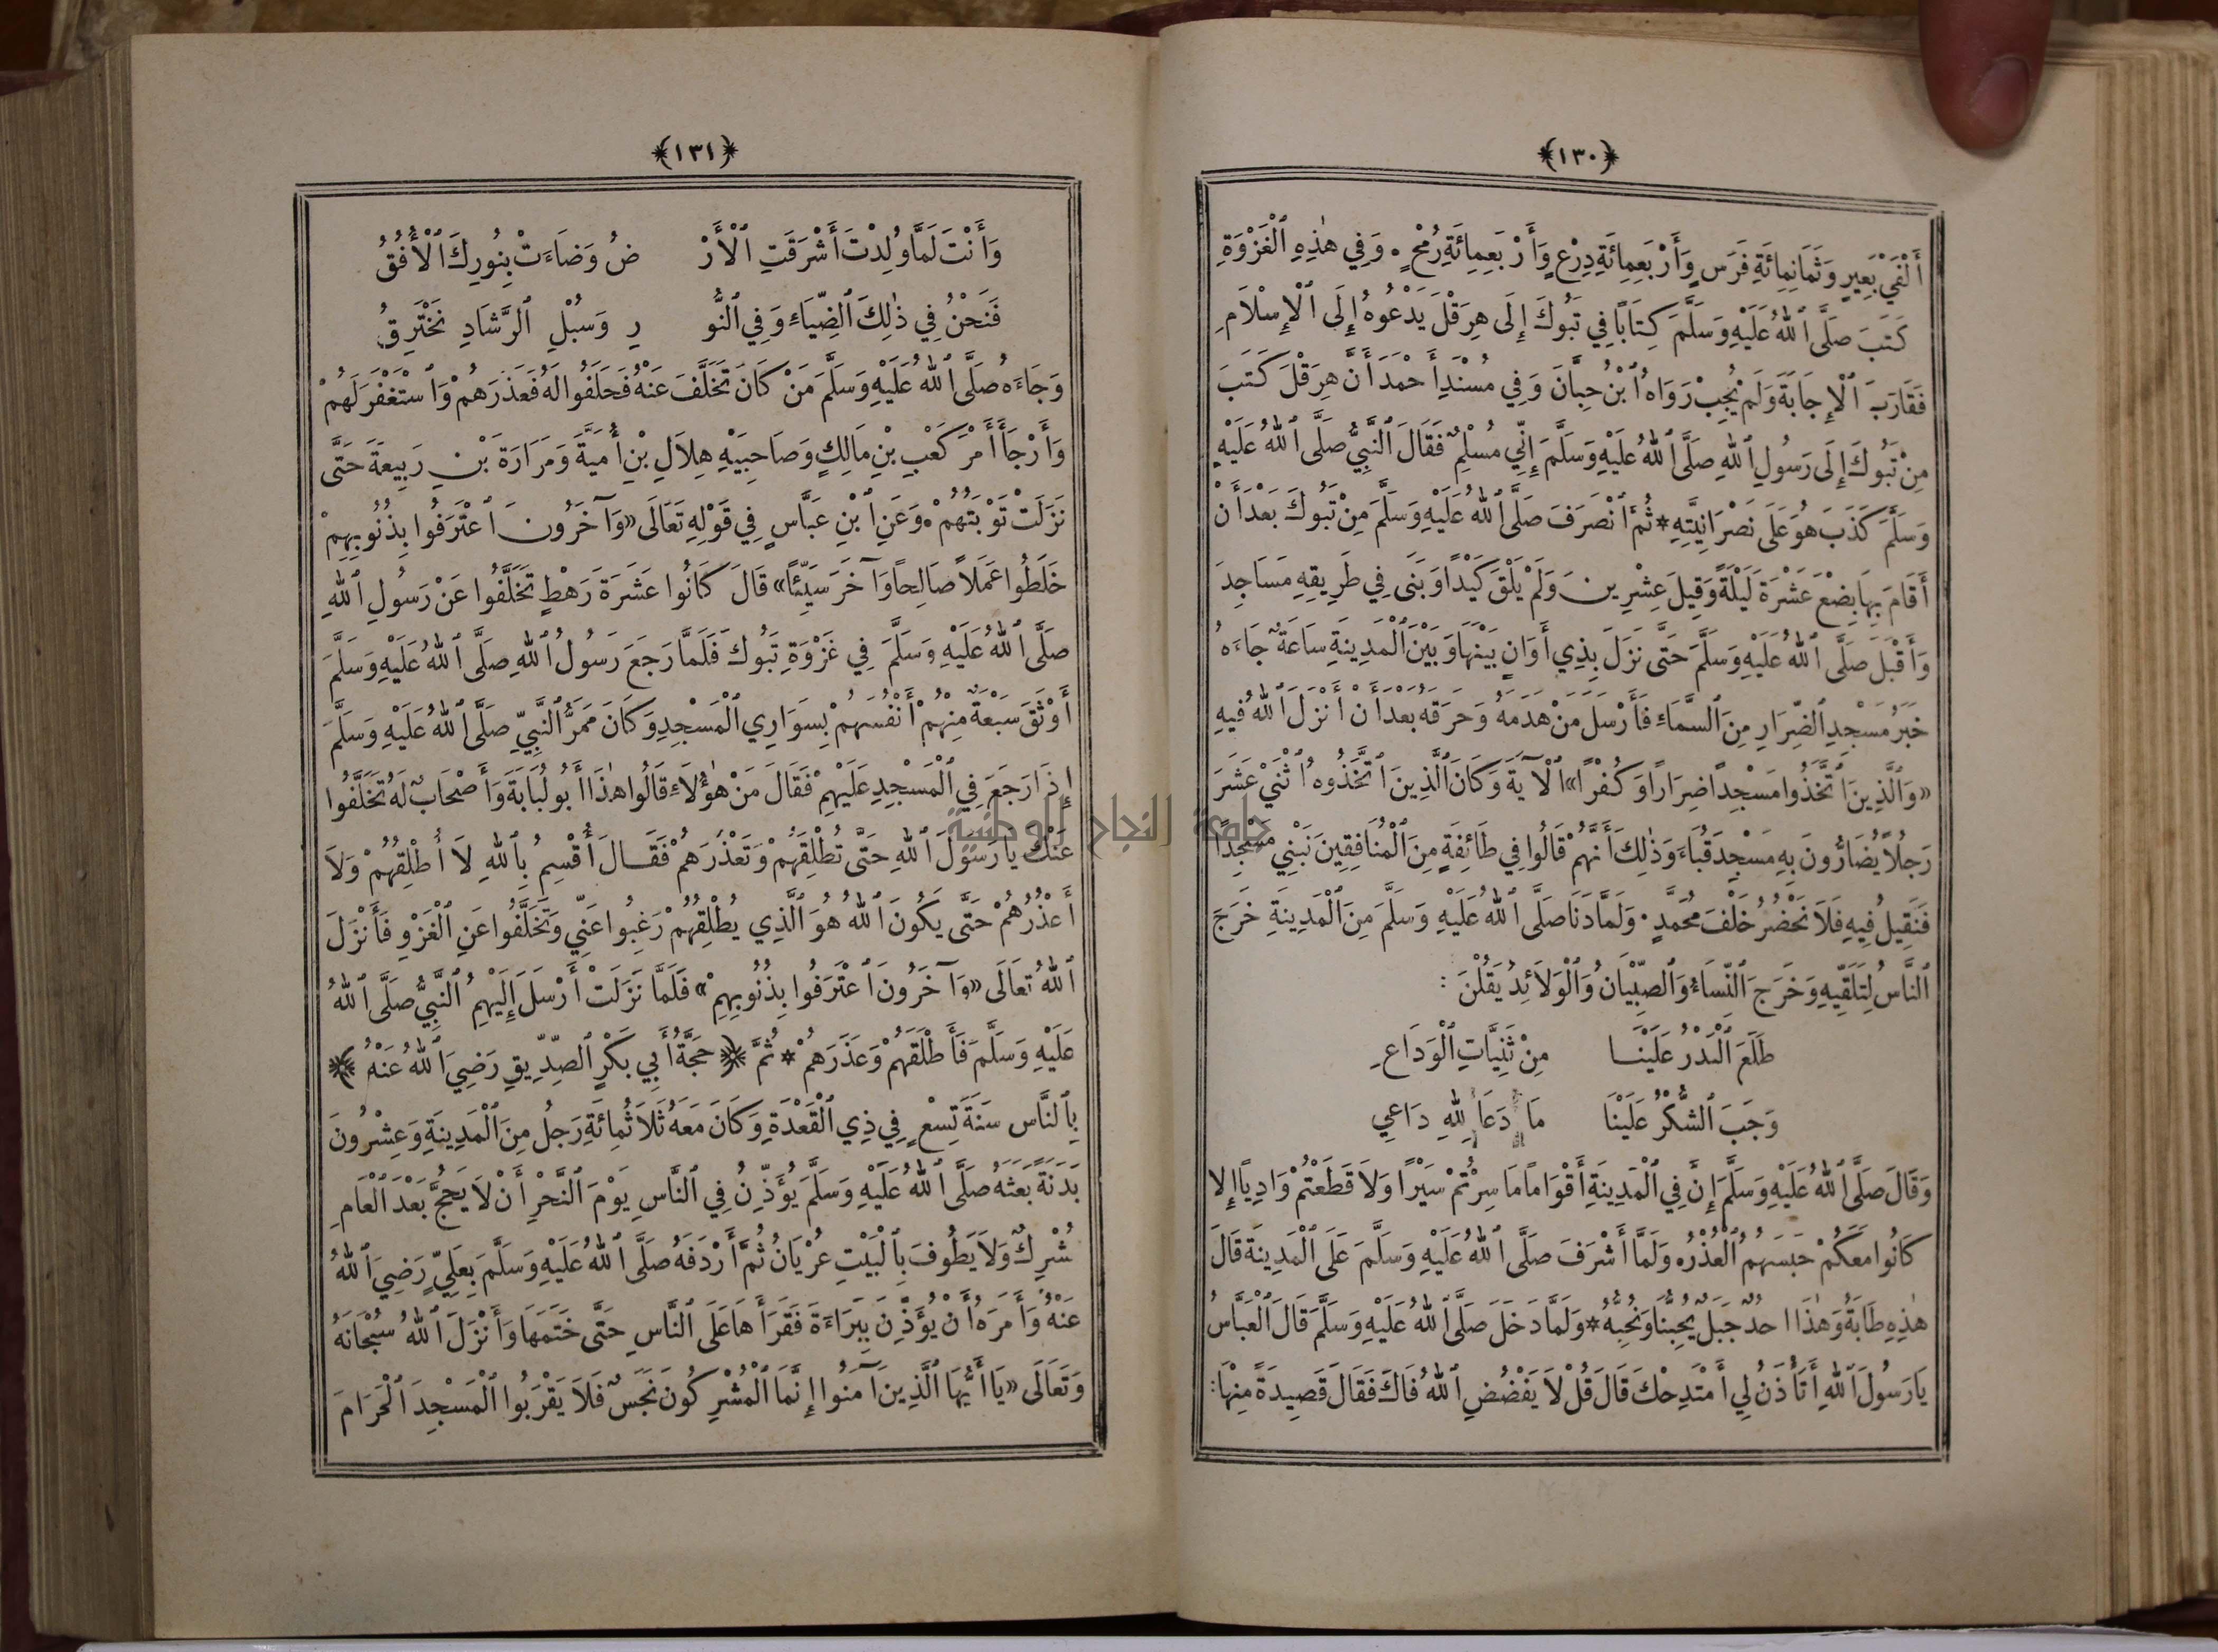 ﴿١٣٠﴾
أَلْفَيْ بَعِيرٍ وَثَمَانِمِائَةِ فَرَسٍ وَأَرْبَعِمِائَةِ دِرْعٍ وَأَرْبَعِمِائَةِ رُمْحٍ. وَفِي هٰذِهِ ٱلْغَزْوَةِ
كَتَبَ صَلَّى ٱللهُ عَلَيْهِ وَسَلَّمَ كِتَابًا فِي تَبُوكَ إِلَى هِرَقْلَ يَدْعُوهُ إِلَى ٱلْإِسْلَامِ
فَقَارَبَ ٱلْإِجَابَةَ وَلَمْ يُجِبْ رَوَاهُ ٱبْنُ حِبَّانَ وَفِي مُسْنَدِ أَحْمَدَ أَنَّ هِرَقْلَ كَتَبَ
مِنْ تَبُوكَ إِلَى رَسُولِ ٱللهِ صَلَّى ٱللهُ عَلَيْهِ وَسَلَّمَ إِنِّي مُسْلِمٌ فَقَالَ ٱلنَّبِيُّ صَلَّى ٱللهُ عَلَيْهِ
وَسَلَّمَ كَذَبَ هُوَ عَلَى نَصْرَانِيَّتِهِ * ثُمَّ ٱنْصَرَفَ صَلَّى ٱللهُ عَلَيْهِ وَسَلَّمَ مِنْ تَبُوكَ بَعْدَ أَنْ
أَقَامَ بِهَا بِضْعَ عَشْرَةَ لَيْلَةً وَقِيلَ عِشْرِينَ وَلَمْ يَلْقَ كَيْدًا وَبَنَى فِي طَرِيقِهِ مَسَاجِدَ
وَأَقْبَلَ صَلَّى ٱللهُ عَلَيْهِ وَسَلَّمَ حَتَّى نَزَلَ بِذِي أَوَانٍ بَيْنَهَا وَبَيْنَ ٱلْمَدِينَةِ سَاعَةٌ جَاءَهُ
خَبَرُ مَسْجِدِ ٱلضِّرَارِ مِنَ ٱلسَّمَاءِ فَأَرْسَلَ مَنْ هَدَمَهُ وَحَرَقَهُ بَعْدَ أَنْ أَنْزَلَ ٱللهُ فِيهِ
«وَٱلَّذِينَ ٱتَّخَذُوا مَسْجِدًا ضِرَارًا وَكُفْرًا» ٱلْآيَةَ وَكَانَ ٱلَّذِينَ ٱتَّخَذُوهُ ٱثْنَيْ عَشَرَ
رَجُلًا يُضَارُّونَ بِهِ مَسْجِدَ قُبَاءَ وَذٰلِكَ أَنَّهُمْ قَالُوا فِي طَائِفَةٍ مِنَ ٱلْمُنَافِقِينَ نَبْنِي مَسْجِدًا
فَنَقِيلُ فِيهِ فَلَا نَحْضُرُ خَلْفَ مُحَمَّدٍ. وَلَمَّا دَنَا صَلَّى ٱللهُ عَلَيْهِ وَسَلَّمَ مِنَ ٱلْمَدِينَةِ خَرَجَ
ٱلنَّاسُ لِتَلَقِّيهِ وَخَرَجَ ٱلنِّسَاءُ وَٱلصِّبْيَانُ وَٱلْوَلَائِدُ يَقُلْنَ :
طَلَعَ ٱلْبَدْرُ عَلَيْنَا مِنْ ثَنِيَّاتِ ٱلْوَدَاعِ
وَجَبَ ٱلشُّكْرُ عَلَيْنَا مَا دَعَا لِلهِ دَاعِي
وَقَالَ صَلَّى ٱللهُ عَلَيْهِ وَسَلَّمَ إِنَّ فِي ٱلْمَدِينَةِ أَقْوَامًا مَا سِرْتُمْ سَيْرًا وَلَا قَطَعْتُمْ وَادِيًا إِلا
كَانُوا مَعَكُمْ حَبَسَهُمُ ٱلْعُذْرُ. وَلَمَّا أَشْرَفَ صَلَّى ٱللهُ عَلَيْهِ وَسَلَّمَ عَلَى ٱلْمَدِينَةِ قَالَ
هٰذِهِ طَابَةُ وَهٰذَا احُدٌ جَبَلٌ يُحِبُّنَا وَنُحِبُّهُ * وَلَمَّا دَخَلَ صَلَّى ٱللهُ عَلَيْهِ وَسَلَّمَ قَالَ ٱلْعَبَّاسُ
يَا رَسُولَ ٱللهِ أَتَأْذَنُ لِي أَمْتَدِحْكَ قَالَ قُلْ لَا يَفْضُضِ ٱللهُ فَاكَ فَقَالَ قَصِيدَةً مِنْهَا:
﴿١٣١﴾
وَأَنْتَ لَمَّا وُلِدْتَ أَشْرَقَتِ ٱلْأَرْ ضُ وَضَاءَتْ بِنُورِكَ ٱلْأُفُقُ
فَنَحْنُ فِي ذٰلِكَ ٱلضِّيَاءِ وَفِي ٱلنُّو رِ وَسُبْلِ ٱلرَّشَادِ نَخْتَرِقُ
وَجَاءَهُ صَلَّى ٱللهُ عَلَيْهِ وَسَلَّمَ مَنْ كَانَ تَخَلَّفَ عَنْهُ فَحَلَفُوا لَهُ فَعَذَرَهُمْ وَٱسْتَغْفَرَ لَهُمْ
وَأَرْجَأَ أَمْرَ كَعْبِ بْنِ مَالِكٍ وَصَاحِبَيْهِ هِلَالِ بْنِ أُمَيَّةَ وَمَرَارَةَ بْنِ رَبِيعَةَ حَتَّى
نَزَلَتْ تَوْبَتُهُمْ. وَعَنِ ٱبْنِ عَبَّاسٍ فِي قَوْلِهِ تَعَالَى «وَآخَرُونَ ٱعْتَرَفُوا بِذُنُوبِهِمْ
خَلَطُوا عَمَلًا صَالِحًا وَآخَرَ سَيِّئًا» قَالَ كَانُوا عَشَرَةَ رَهْطٍ تَخَلَّفُوا عَنْ رَسُولِ ٱللهِ
صَلَّى ٱللهُ عَلَيْهِ وَسَلَّمَ فِي غَزْوَةِ تَبُوكَ فَلَمَّا رَجَعَ رَسُولُ ٱللهِ صَلَّى ٱللهُ عَلَيْهِ وَسَلَّمَ
أَوْثَقَ سَبْعَةٌ مِنْهُمْ أَنْفُسَهُمْ بِسَوَارِي ٱلْمَسْجِدِ وَكَانَ مَمَرُّ ٱلنَّبِيِّ صَلَّى ٱللهُ عَلَيْهِ وَسَلَّمَ
إِذَا رَجَعَ فِي ٱلْمَسْجِدِ عَلَيْهِمْ فَقَالَ مَنْ هٰؤُلَاءِ قَالُوا هٰذَا أَبُو لُبَابَةَ وَأَصْحَابٌ لَهُ تَخَلَّفُوا
عَنْكَ يَا رَسُولَ ٱللهِ حَتَّى تُطْلِقَهُمْ وَتَعْذُرَهُمْ فَقَالَ أُقْسِمُ بِٱللهِ لَا أُطْلِقُهُمْ وَلَا
أَعْذُرُهُمْ حَتَّى يَكُونَ ٱللهُ هُوَ ٱلَّذِي يُطْلِقُهُمْ رَغِبُوا عَنِّي وَتَخَلَّفُوا عَنِ ٱلْغَزْوِ فَأَنْزَلَ
ٱللهُ تَعَالَى «وَآخَرُونَ ٱعْتَرَفُوا بِذُنُوبِهِمْ» فَلَمَّا نَزَلَتْ أَرْسَلَ إِلَيْهِمُ ٱلنَّبِيُّ صَلَّى ٱللهُ
عَلَيْهِ وَسَلَّمَ فَأَطْلَقَهُمْ وَعَذَرَهُمْ * ثُمَّ ﴿حَجَّةُ أَبِي بَكْرٍ ٱلصِّدِّيقِ رَضِيَ ٱللهُ عَنْهُ﴾
بِٱلنَّاسِ سَنَةَ تِسْعٍ فِي ذِي ٱلْقَعْدَةِ وَكَانَ مَعَهُ ثَلَاثُمِائَةِ رَجُلٍ مِنَ ٱلْمَدِينَةِ وَعِشْرُونَ
بَدَنَةً بَعَثَهُ صَلَّى ٱللهُ عَلَيْهِ وَسَلَّمَ يُؤَذِّنُ فِي ٱلنَّاسِ يَوْمَ ٱلنَّحْرِ أَنْ لَا يَحُجَّ بَعْدَ ٱلْعَامِ
مُشْرِكٌ وَلَا يَطُوفَ بِٱلْبَيْتِ عُرْيَانٌ ثُمَّ أَرْدَفَهُ صَلَّى ٱللهُ عَلَيْهِ وَسَلَّمَ بِعَلِيٍّ رَضِيَ ٱللهُ
عَنْهُ وَأَمَرَهُ أَنْ يُؤَذِّنَ بِبَرَاءَةَ فَقَرَأَهَا عَلَى ٱلنَّاسِ حَتَّى خَتَمَهَا وَأَنْزَلَ ٱللهُ سُبْحَانَهُ
وَتَعَالَى «يَا أَيُّهَا ٱلَّذِينَ آمَنُوا إِنَّمَا ٱلْمُشْرِكُونَ نَجَسٌ فَلَا يَقْرَبُوا ٱلْمَسْجِدَ ٱلْحَرَامَ
جامعة النجاح الوطنية